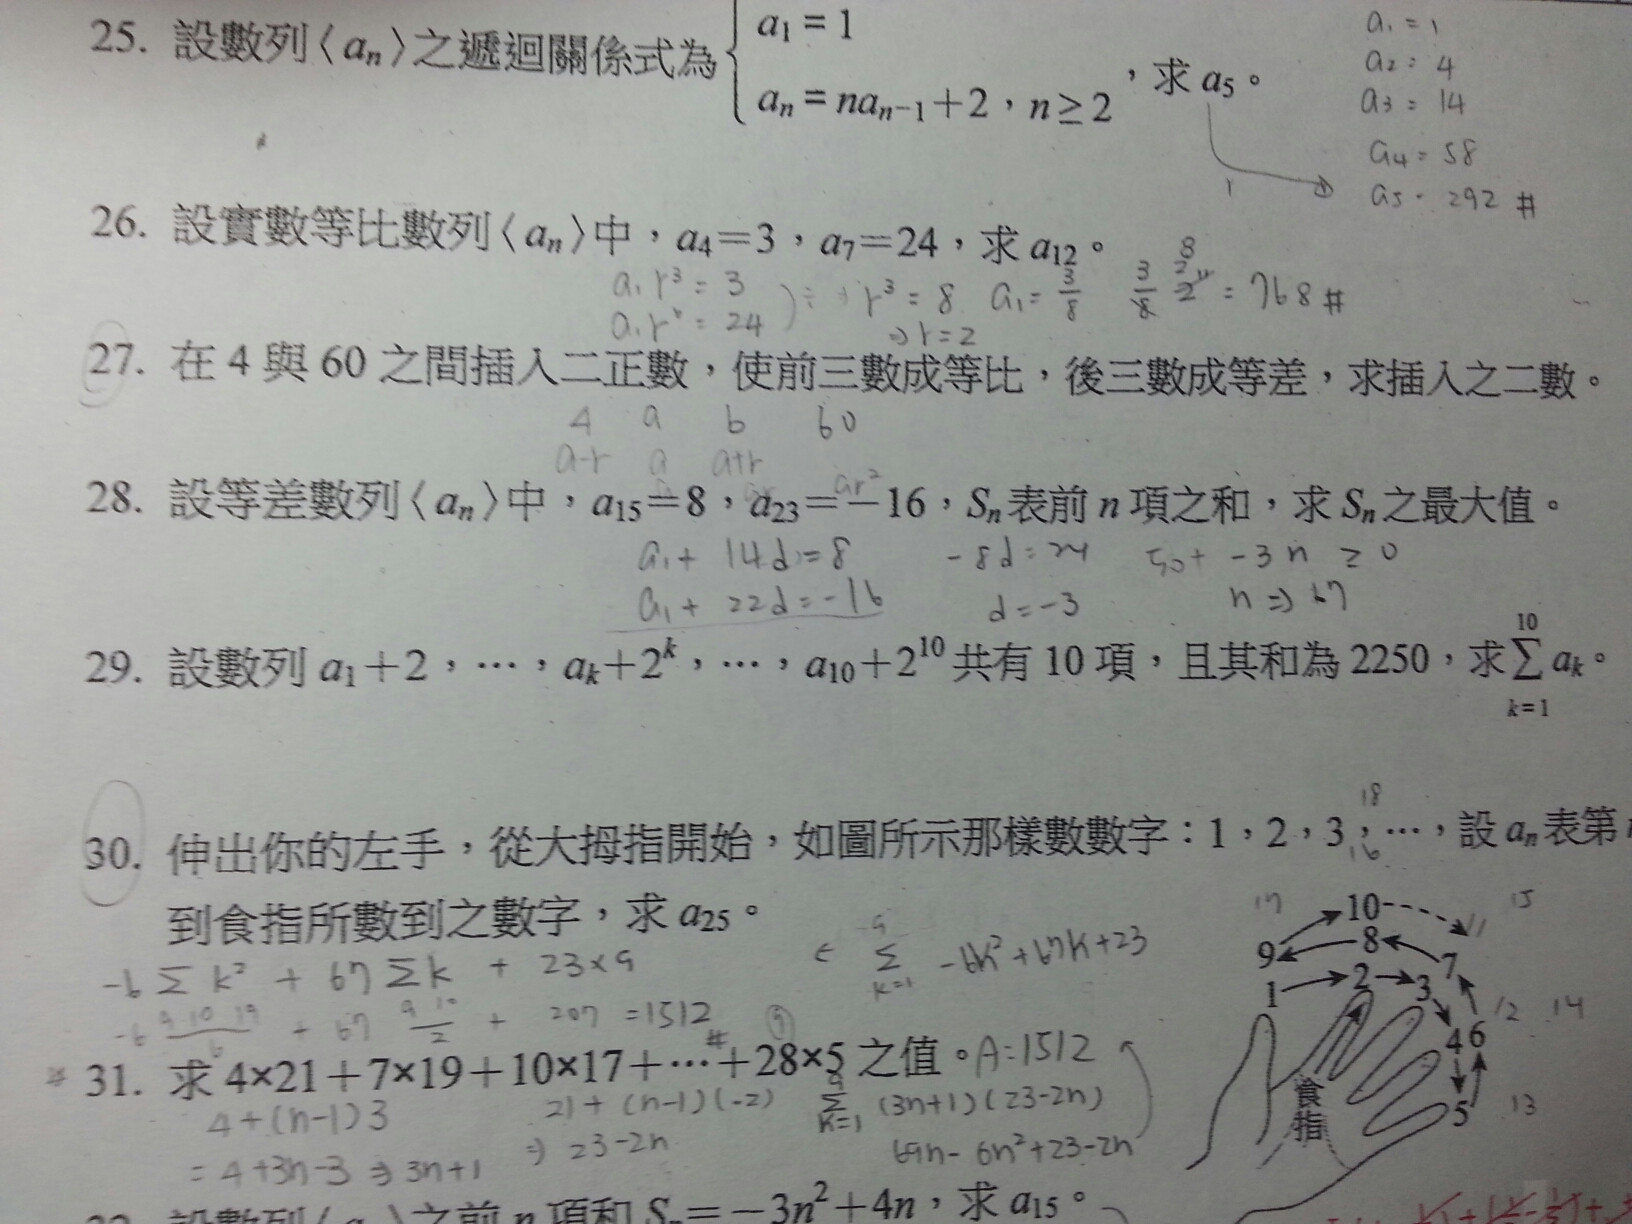 25. 設數列⟨aₙ⟩之遞迴關係式為 { a₁=1
aₙ=naₙ₋₁+2,n≥2 ,求a₅。
a₁=1
a₂=4
a₃=14
a₄=58
a₅=292 #
26. 設實數等比數列⟨aₙ⟩中,a₄=3,a₇=24,求a₁₂。
a₁r³=3
a₁r⁶=24
r³=8
⇒r=2
a₁=3/8
=768#
27. 在4與60之間插入二正數,使前三數成等比,後三數成等差,求插入之二數。
4 a b 60
a-r a a+r
ar²
28. 設等差數列⟨aₙ⟩中,a₁₅=8,a₂₃=-16,Sₙ表前n項之和,求Sₙ之最大值。
a₁+14d=8 -8d=24 50+-3n≥0
a₁+22d=-16 d=-3 n⇒17
29. 設數列a₁+2,…,aₖ+2ᵏ,…,a₁₀+2¹⁰共有10項,且其和為2250,求∑aₖ。
10
k=1
18
30. 伸出你的左手,從大拇指開始,如圖所示那樣數數字:1,2,3,…,設aₙ表第
16
到食指所數到之數字,求a₂₅。
17 10 15
9 8 11
1 2 3 7
4 6 12 14
5 13
食指
-6∑k²+67∑k+23×9
∑ -6k²+67k+23
k=1
-6 9 10 19/6 + 67 9 10/2 + 207 =1512 #
31. 求4×21+7×19+10×17+…+28×5之值。A=1512
4+(n-1)3 21+(n-1)(-2) ∑ (3n+1)(23-2n)
9
k=1
=4+3n-3⇒3n+1 ⇒23-2n 69n-6n²+23-2n
32. 設數列⟨aₙ⟩之前n項和Sₙ=-3n²+4n,求a₁₅。